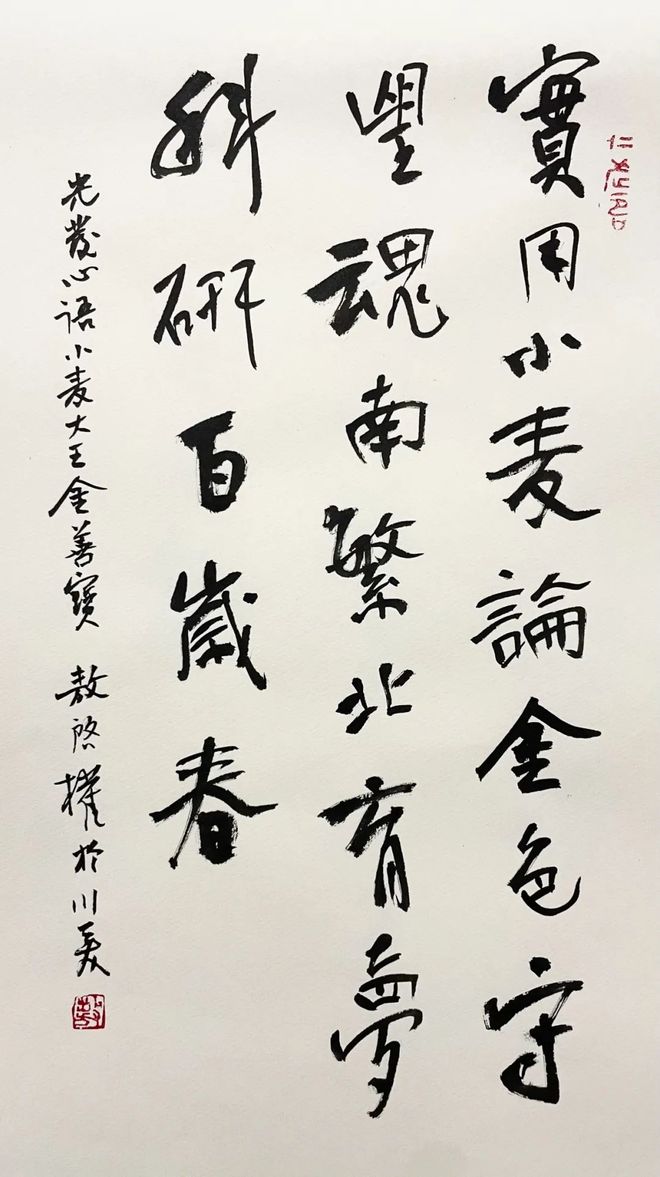 實用小麦論金色守
望魂南繁北育夢
科研百歲春
光發心語小麦大王金善寶 敖啓權於川美